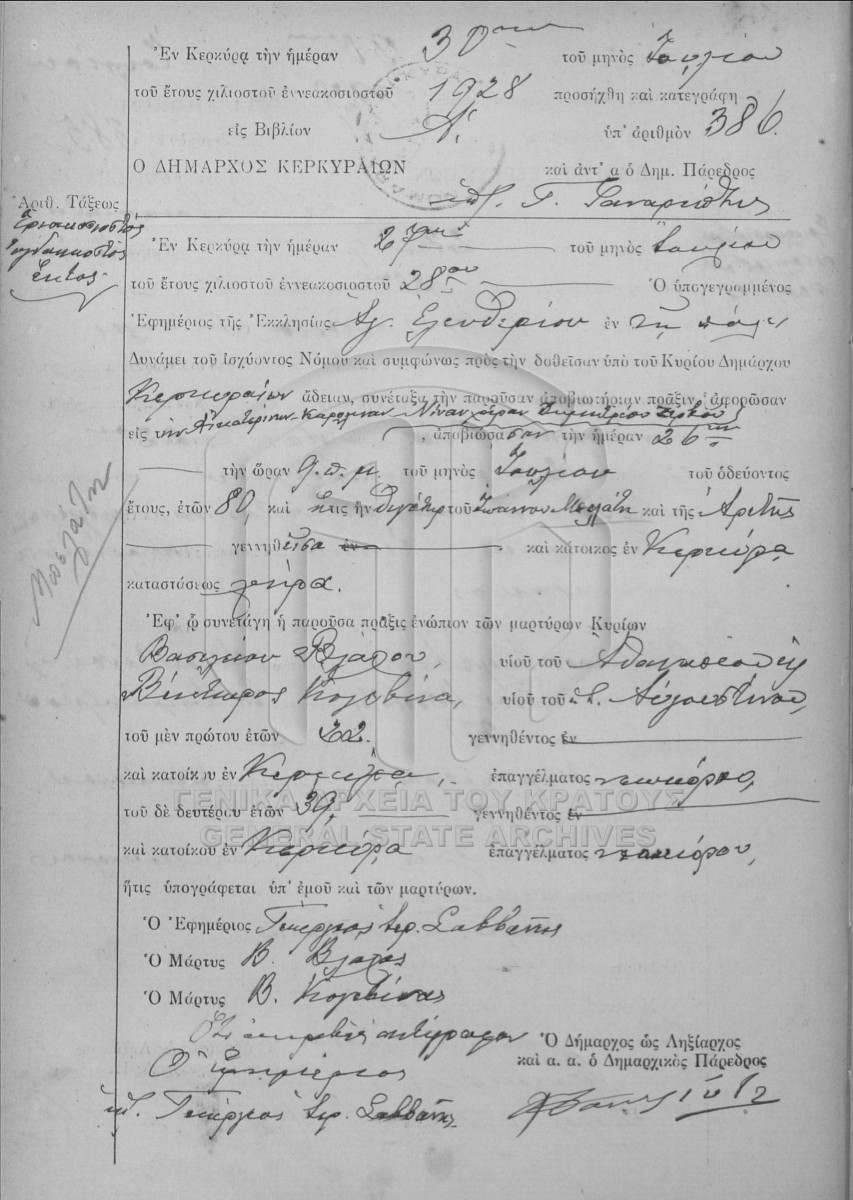 Ἐν Κερκύρᾳ τὴν ἡμέραν 30ην τοῦ μηνὸς Ἰουλίου
τοῦ ἔτους χιλιοστοῦ ἐννεακοσιοστοῦ 1928 προσήχθη καὶ κατεγράφη
εἰς Βιβλίον Α΄. ὑπ' ἀριθμὸν 386
Ο ΔΗΜΑΡΧΟΣ ΚΕΡΚΥΡΑΙΩΝ καὶ ἀντ' α ὁ Δημ. Πάρεδρος
Ἀριθ. Τάξεως
Τριακοσιοστὸς
ὀγδοηκοστὸς
ἕκτος
Ἐν Κερκύρᾳ τὴν ἡμέραν 27ην τοῦ μηνὸς Ἰουλίου
τοῦ ἔτους χιλιοστοῦ ἐννεακοσιοστοῦ 28ου Ὁ ὑπογεγραμμένος
Ἐφημέριος τῆς Ἐκκλησίας Ἁγ. Ἐλευθερίου ἐν τῇ πόλει
Δυνάμει τοῦ ἰσχύοντος Νόμου καὶ συμφώνως πρὸς τὴν δοθεῖσαν ὑπὸ τοῦ Κυρίου Δημάρχου
Κερκυραίων ἄδειαν, συνέταξα τὴν παροῦσαν ἀποβιωτήριαν πρᾶξιν, ἀφορῶσαν
εἰς τὴν Αἰκατερίναν χήραν Δημητρίου
, ἀποβιώσασαν τὴν ἡμέραν 26ην
τὴν ὥραν 9. π. μ. τοῦ μηνὸς Ἰουλίου τοῦ ὁδεύοντος
ἔτους, ἐτῶν 80, καὶ ἥτις ἦν θυγάτηρ τοῦ Ἰωάννου καὶ τῆς Ἀρετῆς
γεννηθεῖσα ἐν καὶ κάτοικος ἐν Κερκύρᾳ
καταστάσεως χήρα.
Ἐφ' ᾧ συνετάγη ἡ παροῦσα πρᾶξις ἐνώπιον τῶν μαρτύρων Κυρίων
Βασιλείου Βλάχου, υἱοῦ τοῦ
Βίκτωρος Κολεβίνα, υἱοῦ τοῦ Αὐγουστίνου,
τοῦ μὲν πρώτου ἐτῶν γεννηθέντος ἐν
καὶ κατοίκου ἐν Κερκύρᾳ, ἐπαγγέλματος νεωκόρος,
τοῦ δὲ δευτέρου ἐτῶν 39, γεννηθέντος ἐν
καὶ κατοίκου ἐν Κερκύρᾳ ἐπαγγέλματος νεωκόρου,
ἥτις ὑπογράφεται ὑπ' ἐμοῦ καὶ τῶν μαρτύρων.
Ὁ Ἐφημέριος Γεώργιος Ἱερ. Σαββάνης
Ὁ Μάρτυς Β. Βλάχος
Ὁ Μάρτυς Β. Κολεβίνας
Ὅτι ἀκριβὲς ἀντίγραφον
Ὁ Ἐφημέριος
Γεώργιος Ἱερ. Σαββάνης
Ὁ Δήμαρχος ὡς Ληξίαρχος
καὶ α. α. ὁ Δημαρχικὸς Πάρεδρος
ΓΕΝΙΚΑ ΑΡΧΕΙΑ ΤΟΥ ΚΡΑΤΟΥΣ
GENERAL STATE ARCHIVES